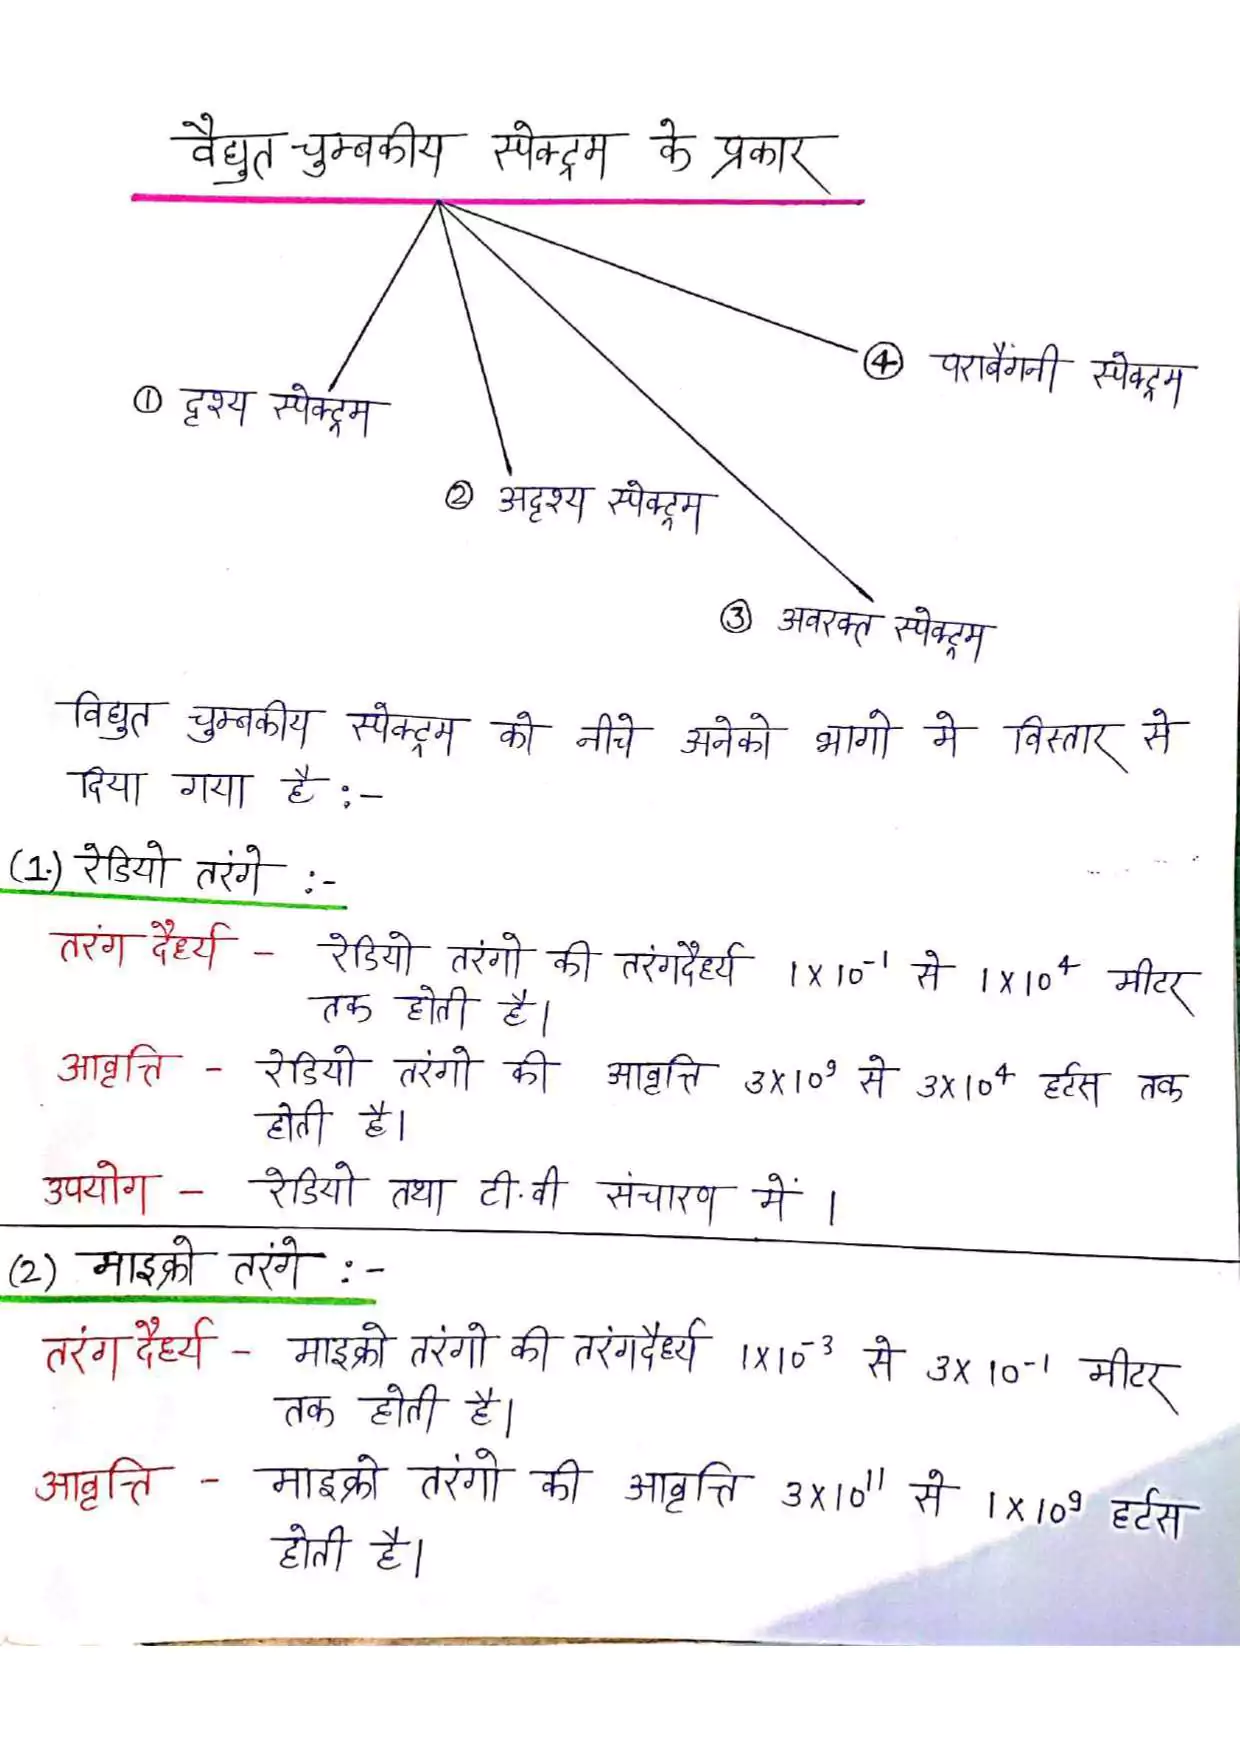 वैद्युत चुम्बकीय स्पेक्ट्रम के प्रकार
④ पराबैंगनी स्पेक्ट्रम
① दृश्य स्पेक्ट्रम
② अदृश्य स्पेक्ट्रम
③ अवरक्त स्पेक्ट्रम
विद्युत चुम्बकीय स्पेक्ट्रम को नीचे अनेको भागो मे विस्तार से
दिया गया है :-
(1.) रेडियो तरंगे :-
तरंग दैर्ध्य - रेडियो तरंगो की तरंगदैर्ध्य 1×10⁻¹ से 1×10⁴ मीटर
तक होती है।
आवृत्ति - रेडियो तरंगो की आवृत्ति 3×10⁹ से 3×10⁴ हर्टस तक
होती है।
उपयोग - रेडियो तथा टी.वी संचारण में ।
(2) माइक्रो तरंगे :-
तरंग दैर्ध्य - माइक्रो तरंगो की तरंगदैर्ध्य 1×10⁻³ से 3×10⁻¹ मीटर
तक होती है।
आवृत्ति - माइक्रो तरंगो की आवृत्ति 3×10¹¹ से 1×10⁹ हर्टस
होती है।